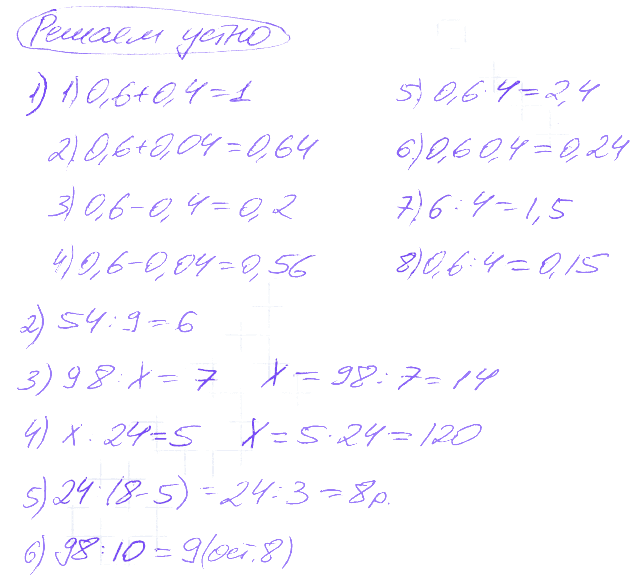 Решаем устно
1) 1) 0,6+0,4=1
2) 0,6+0,04=0,64
3) 0,6-0,4=0,2
4) 0,6-0,04=0,56
5) 0,6·4=2,4
6) 0,6 0,4=0,24
7) 6:4=1,5
8) 0,6:4=0,15
2) 54:9=6
3) 98:X=7 X=98:7=14
4) X·24=5 X=5·24=120
5) 24:(8-5)=24:3=8р.
6) 98:10=9(ост.8)